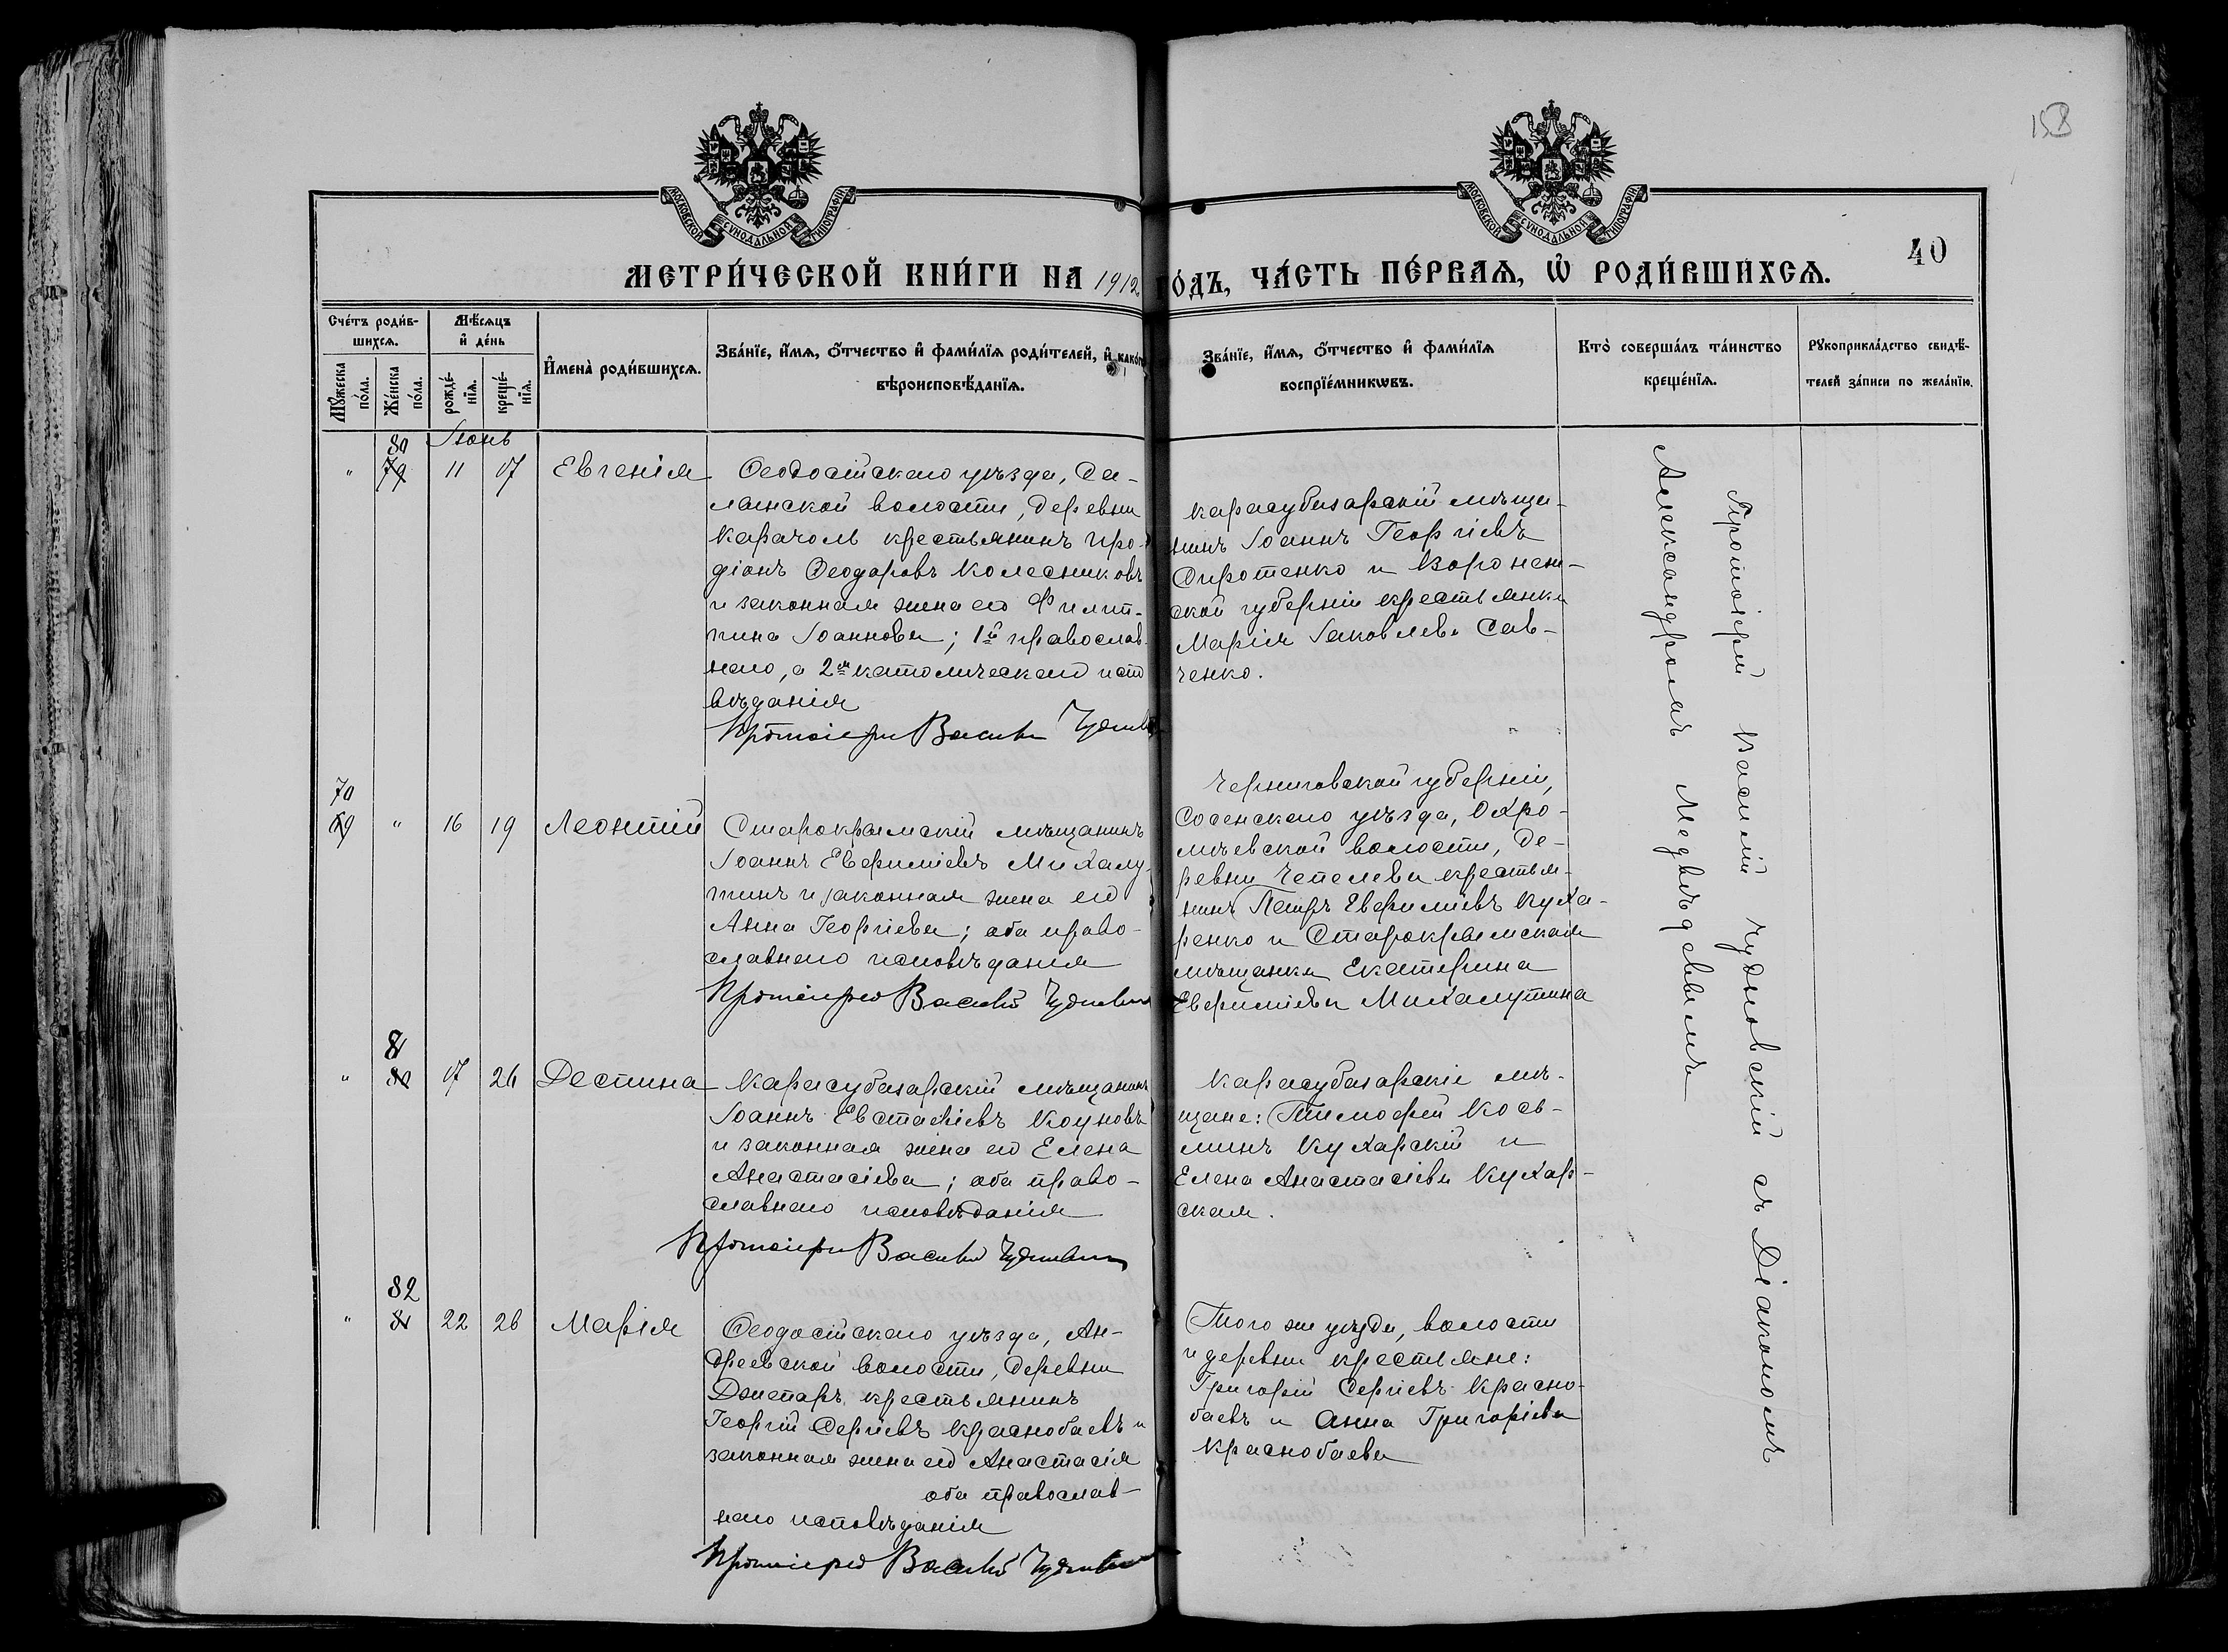 158
МОСКОВСКОЙ СѴНОДАЛЬНОЙ ТИПОГРАФІИ
МОСКОВСКОЙ СѴНОДАЛЬНОЙ ТИПОГРАФІИ
40
МЕТРИ́ЧЕСКОЙ КНИ́ГИ НА 1912 ОДЪ, ЧА́СТЬ ПЕ́РВАЯ, Ѡ РОДИ́ВШИХСЯ.
Сче́тъ роди́в-
шихся.
Мѣ́сяцъ
и҆ де́нь
Мꙋ́жеска по́ла.
Же́нска по́ла.
рожде́-
нїя.
креще́-
нїя.
И҆мена̀ роди́вшихся.
Зва́нїе, и҆́мя, ѻ҆́тчество и҆ фами́лїя роди́телей, и҆ како́г
вѣроисповѣ́данїя.
Зва́нїе, и҆́мя, ѻ҆́тчество и҆ фами́лїя
воспрїе́мникѡвъ.
Кто̀ соверша́лъ та́инство
креще́нїя.
Рꙋкоприкла́дство свидѣ́-
телей за́писи по жела́нїю.
Іюнь
80
" 79 11 17 Евгенія
Ѳеодосійскаго уѣзда, Са-
ланской волости, деревни
Карачоль крестьянинъ Иро-
діонъ Ѳеодоровъ Колесниковъ
и законная жена его Филип-
пина Іоаннова; 1й православ
наго, а 2я католическаго испо
вѣданія
Протоіерей Василій
Карасубазарскій мѣща-
нинъ Іоаннъ Георгіевъ
Сиротенко и Воронеж-
ской губерніи крестьянка
Марія Іаковлева Сав-
ченко.
Протоіерей Василій Чудновскій съ Діакономъ
Александромъ Медвѣдевымъ
70
69 " 16 19 Леонтій
Старокрымскій мѣщанинъ
Іоаннъ Евфиміевъ Михалу-
тинъ и законная жена его
Анна Георгіева; оба право-
славнаго исповѣданія
Протоіерей Василій
Черниговской губерніи,
Сосенскаго уѣзда, Охро-
мѣевской волости, де-
ревни Чепелева крестья-
нинъ Петръ Евфиміевъ Куха-
ренко и Старокрымская
мѣщанка Екатерина
Евфиміева Михалутина
81
" 80 17 26 Деспина
Карасубазарскій мѣщанинъ
Іоаннъ Евстафіевъ Коуновъ
и законная жена его Елена
Анастасіева; оба право-
славнаго исповѣданія
Протоіерей Василій
Карасубазарскіе мѣ-
щане: Тимофей Кось-
минъ Кухарскій и
Елена Анастасіева Кухар-
ская.
82
" 81 22 26 Марія
Ѳеодосійскаго уѣзда, Ан-
дреевской волости, деревни
Джепаръ крестьянинъ
Георгій Сергіевъ Краснобаевъ и
законная жена его Анастасія
оба православ-
наго исповѣданія
Протоіерей Василій
Того же уѣзда, волости
и деревни крестьяне:
Григорій Сергіевъ Красно-
баевъ и Анна Григоріева
Краснобаева